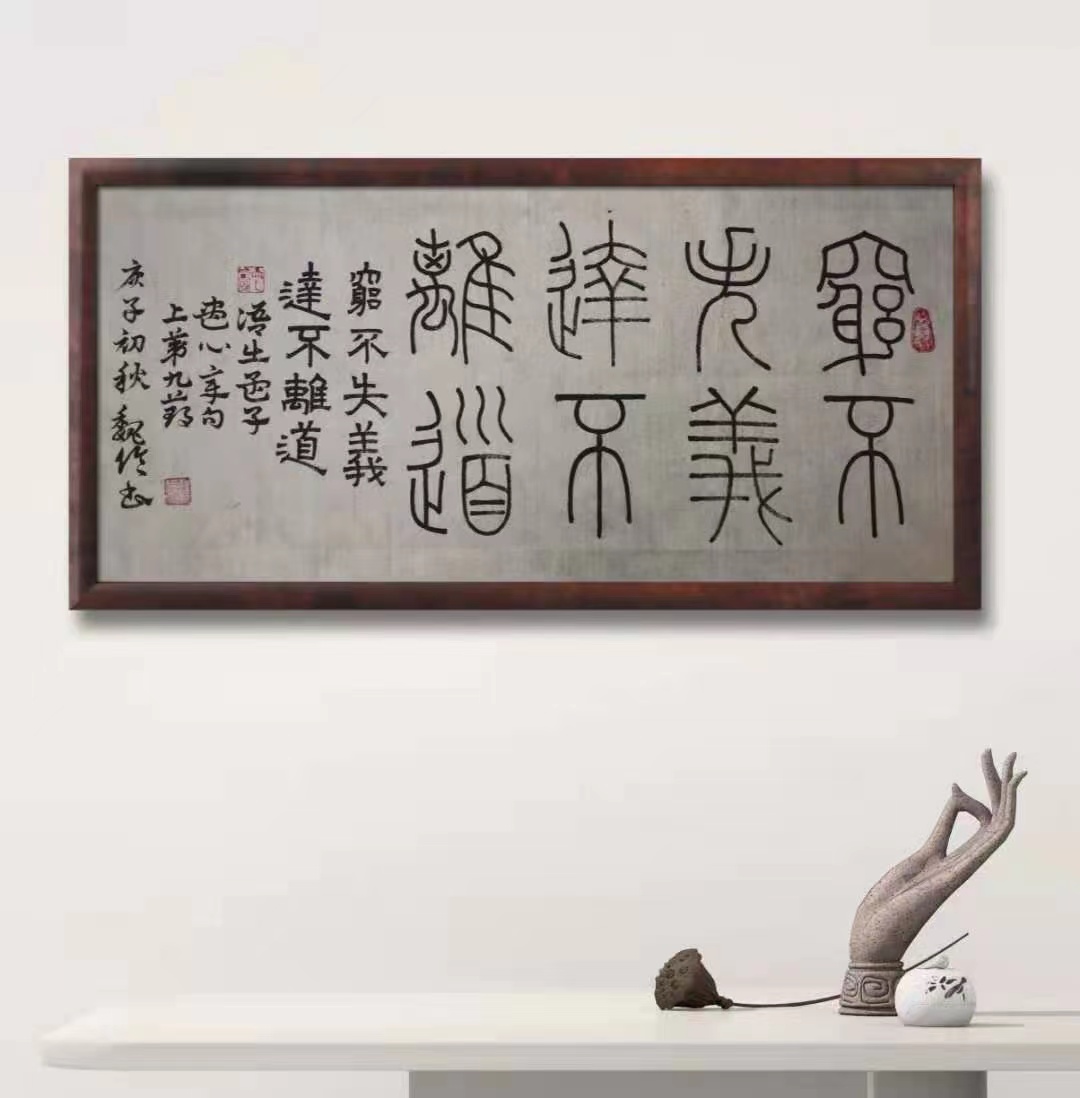 窮不
失義
達不
離道
窮不失義
達不離道
语出孟子
尽心章句
上第九节
庚子初秋 魏书